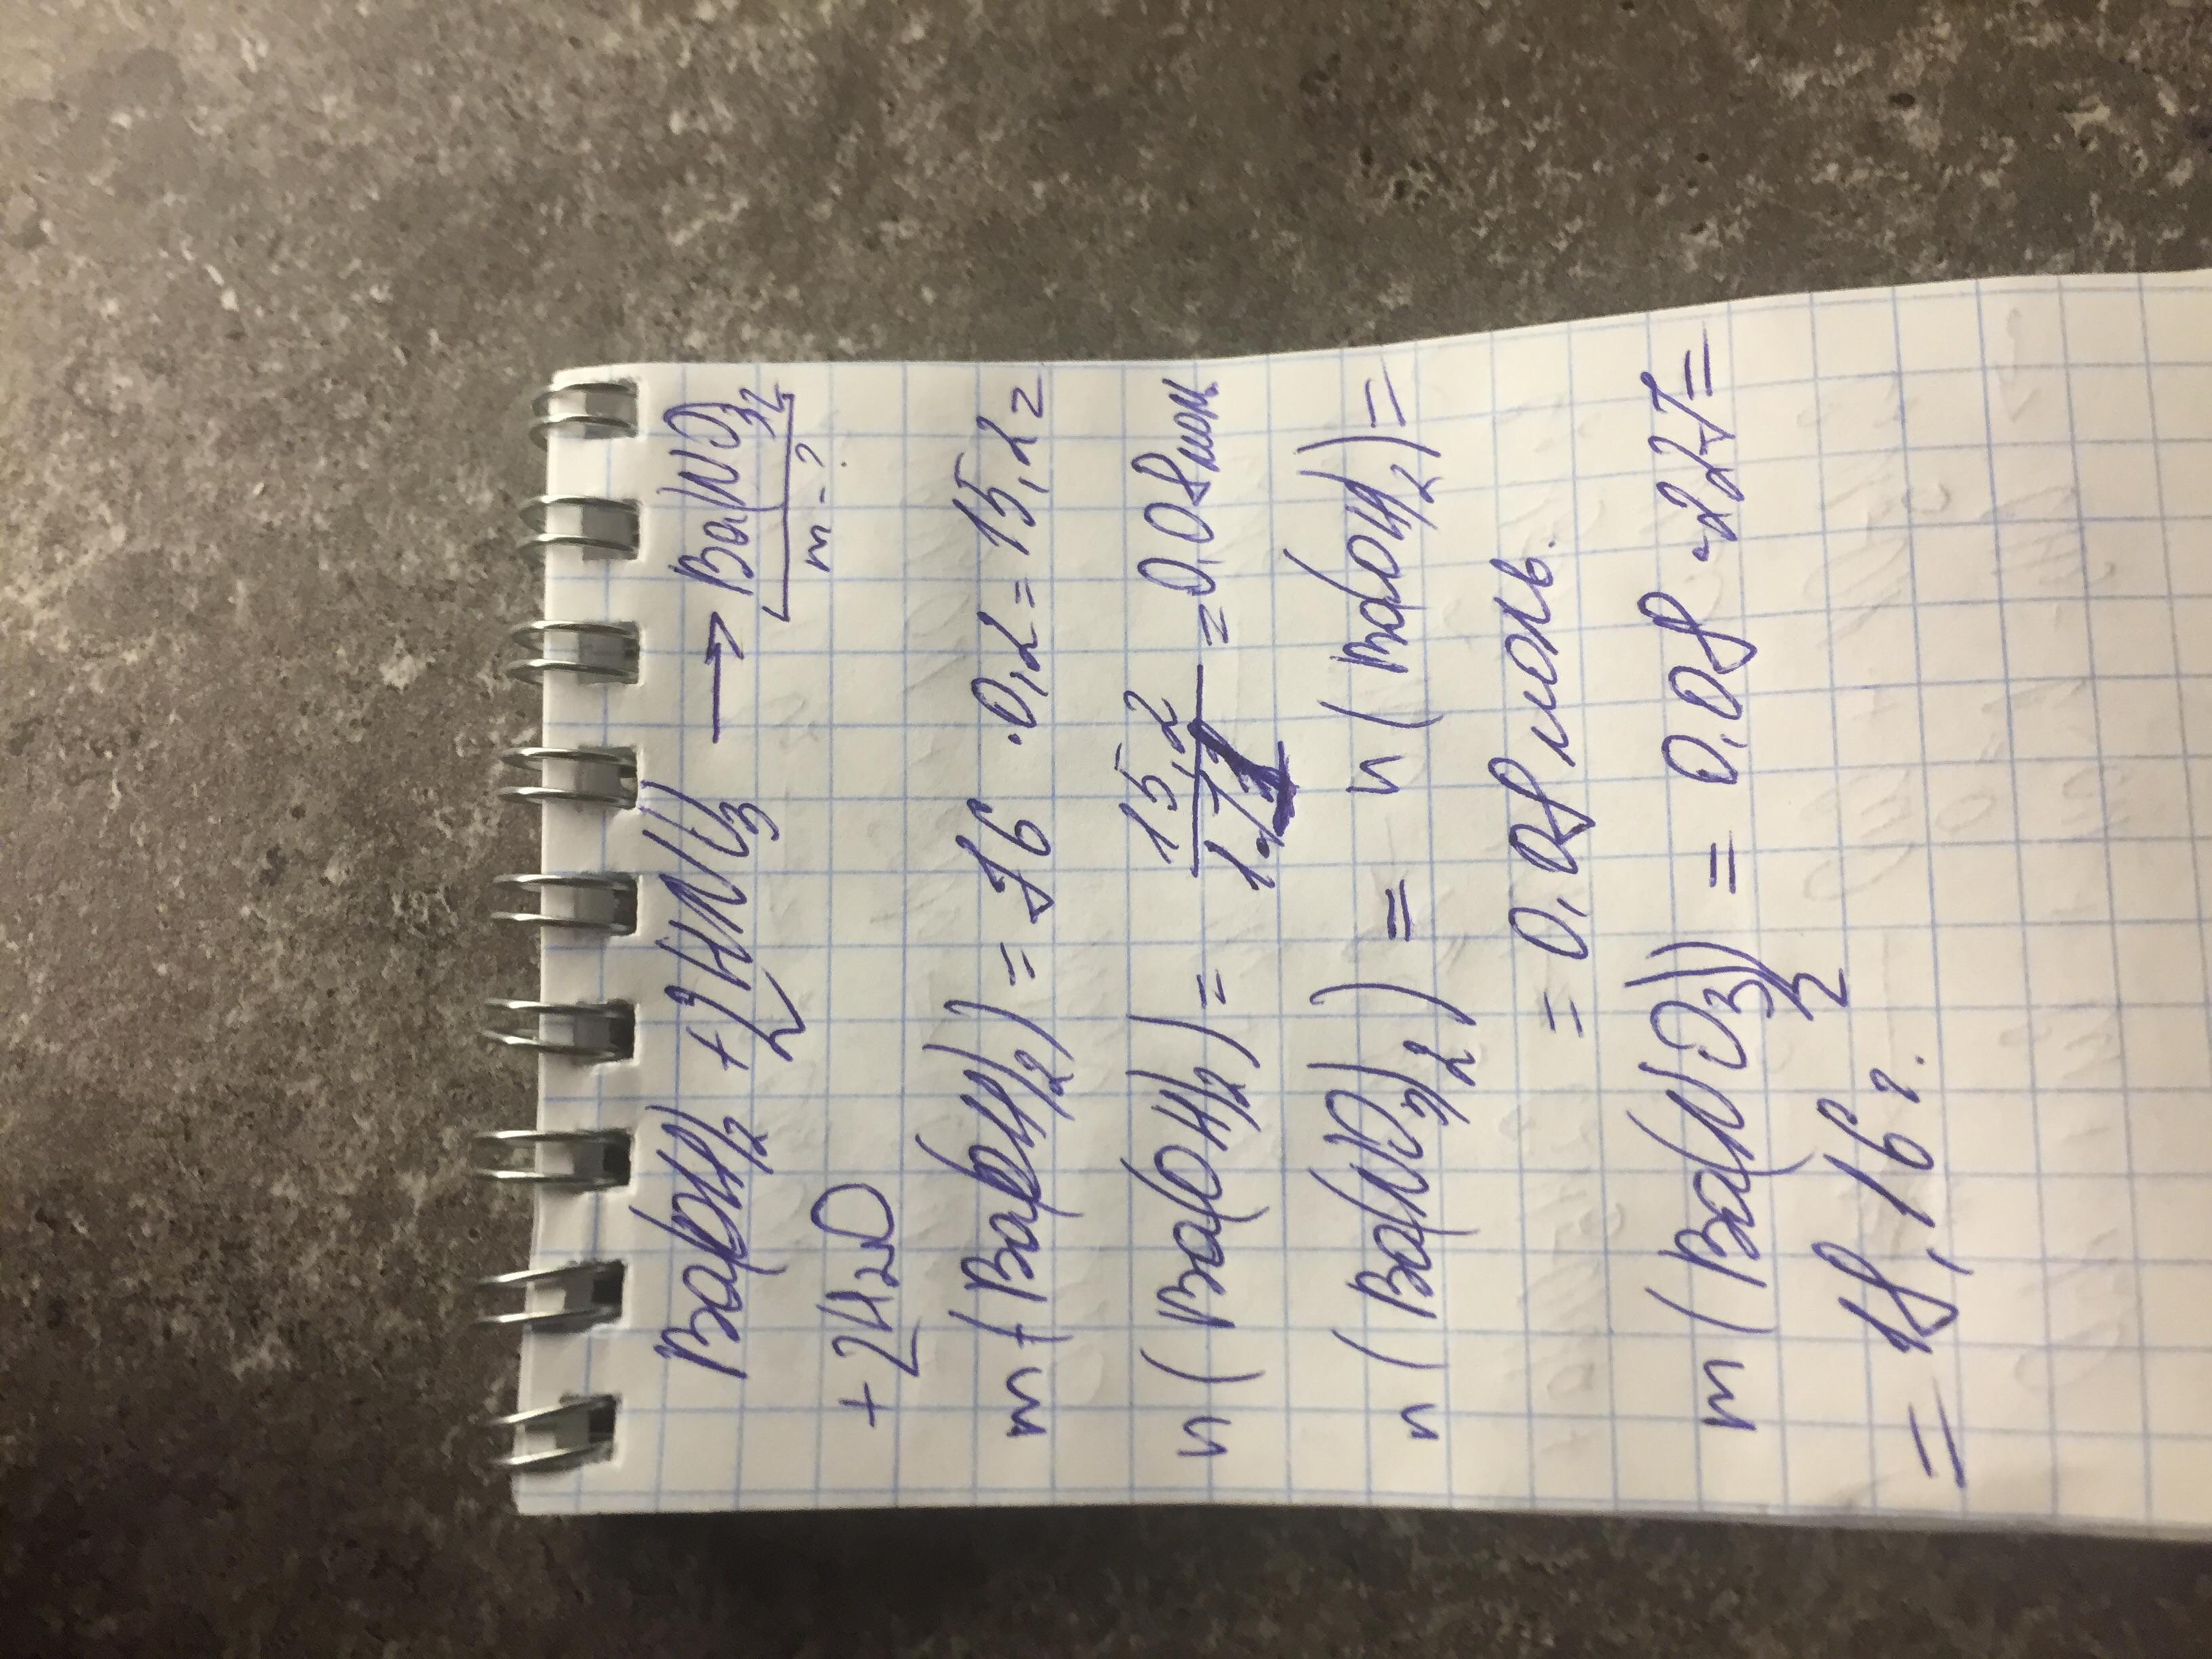 Ba(OH)2 + 2HNO3 → Ba(NO3)2
m-?
+ 2H2O
m (Ba(OH)2) = 76 · 0,2 = 15,2 г
n (Ba(OH)2) = 15,2 / 171 = 0,08 мол
n (Ba(NO3)2) = n (Ba(OH)2) =
= 0,08 моль.
m (Ba(NO3)2) = 0,08 · 227 =
= 18,16 г.